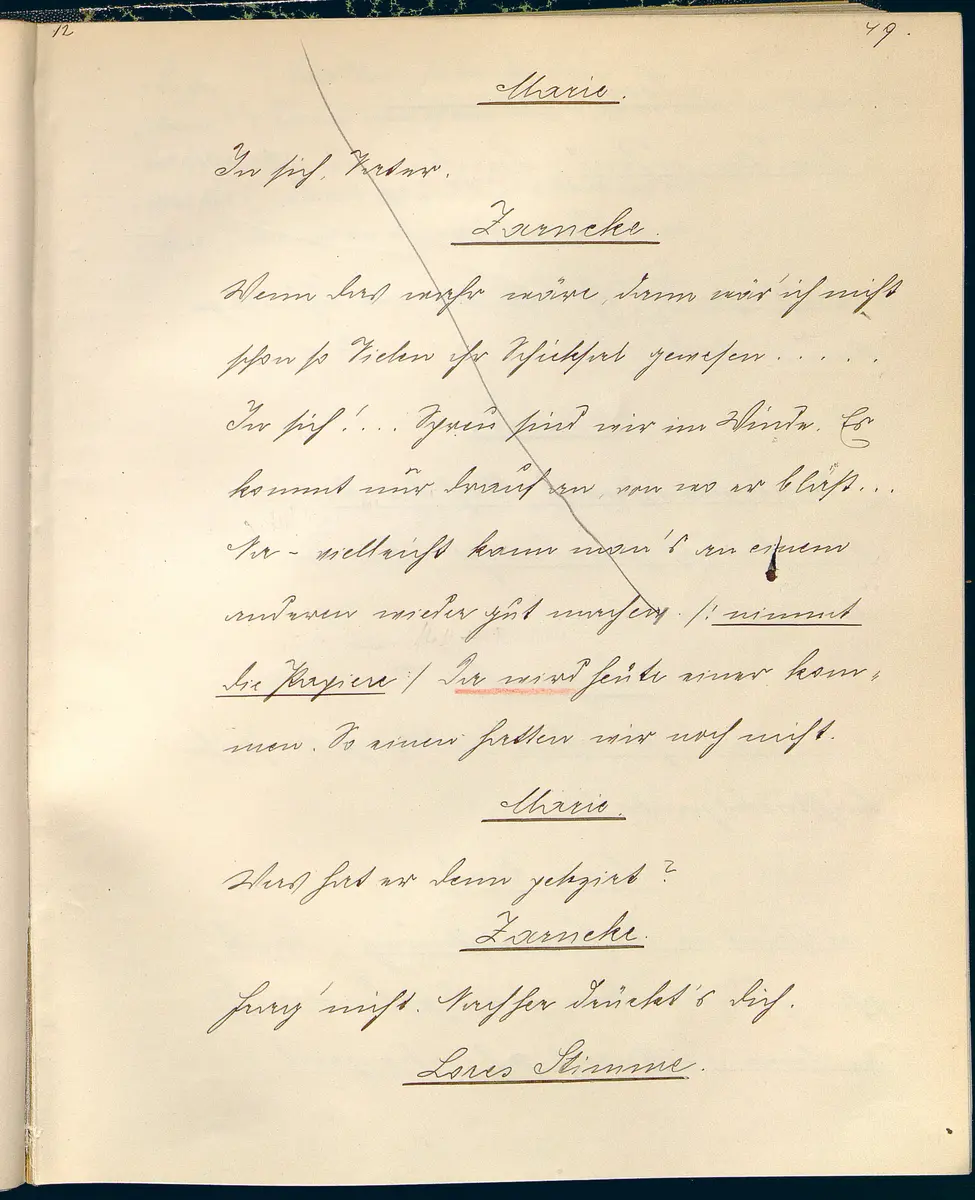 12
49.
Marie.
In sich, Vater.
Zarncke.
Wenn das wahr wäre, dann wär' ich nicht
schon so Vielen ihr Schicksal gewesen . . . . .
In sich! . . . Spreu sind wir im Winde. Es
kommt nur drauf an, von wo er bläst . . .
Na – vielleicht kann man's an einem
anderen wieder gut machen. /: nimmt
die Papiere :/ Da wird heute einer kom-
men. So einen hatten wir noch nicht.
Marie.
Was hat er denn
Zarncke.
Frag' nicht. Nachher drückt's dich.
Lores Stimme.